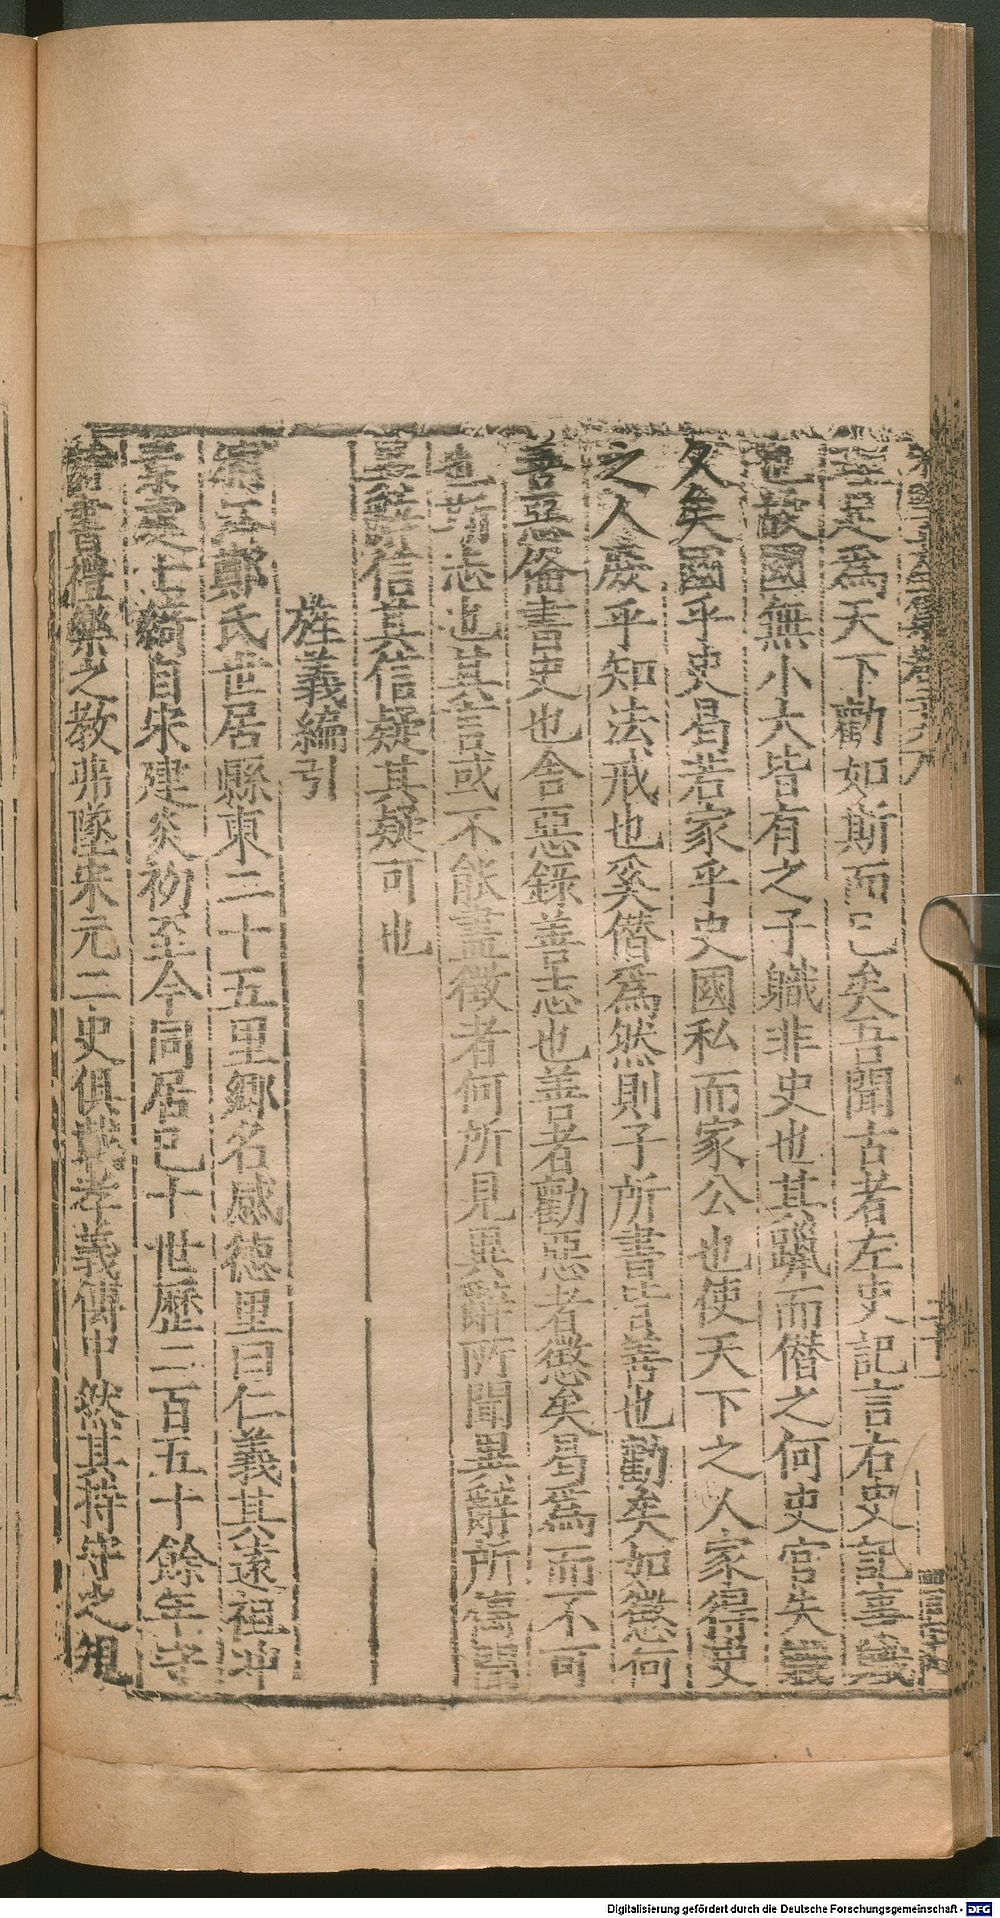 聖足為天下勸如斯而已矣吾聞古者左史記言右史記事職
也故國無小大皆有之予職非史也其躐而僭之何史官失職
久矣國乎史曷若家乎史國私而家公也使天下之人家得史
之人庶乎知法戒也奚僭為然則子所書言善也勸矣如懲何
善惡俻書史也舍惡錄善志也善者勸惡者懲矣曷為而不可
也斯志也其言或不能盡徵者何所見異辭所聞異辭所傳聞
異辭信其信疑其疑可也
旌義編引
浦江鄭氏世居縣東二十五里鄉名感德里曰仁義其遠祖冲
素處士綺自宋建炎初至今同居已十世歷二百五十餘年守
詩書禮樂之教弗墜宋元二史俱載孝義傳中然其持守之規
Digitalisierung gefördert durch die Deutsche Forschungsgemeinschaft - DFG